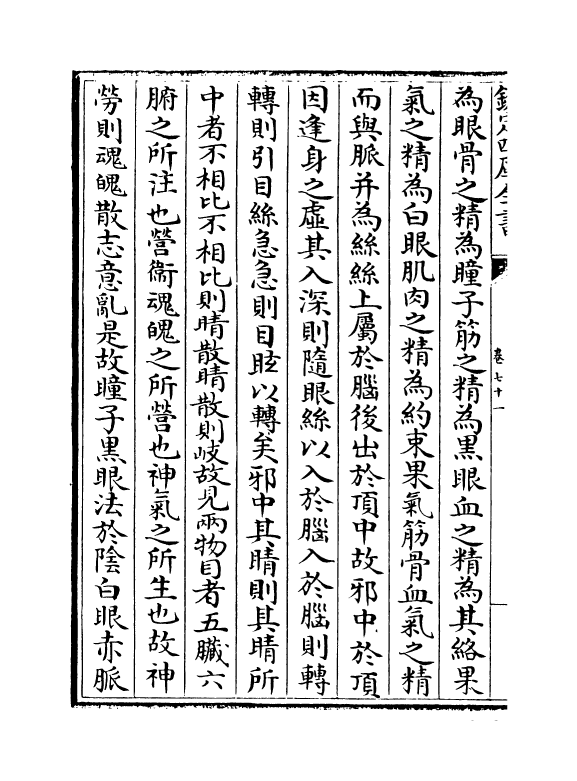 欽定四庫全書
卷七十一
為眼骨之精為瞳子筋之精為黒眼血之精為其絡果
氣之精為白眼肌肉之精為約束果氣筋骨血氣之精
而與脈并為絲絲上屬於腦後出於頂中故邪中於頂
因逢身之虛其入深則隨眼絲以入於腦入於腦則轉
轉則引目絲急急則目眩以轉矣邪中其睛則其睛所
中者不相比不相比則睛散睛散則岐故見兩物目者五臓六
腑之所注也營衛魂魄之所營也神氣之所生也故神
勞則魂魄散志意亂是故瞳子黒眼法於陰白眼赤脈